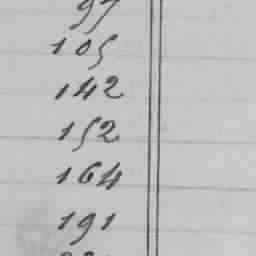 97
105
142
152
164
191